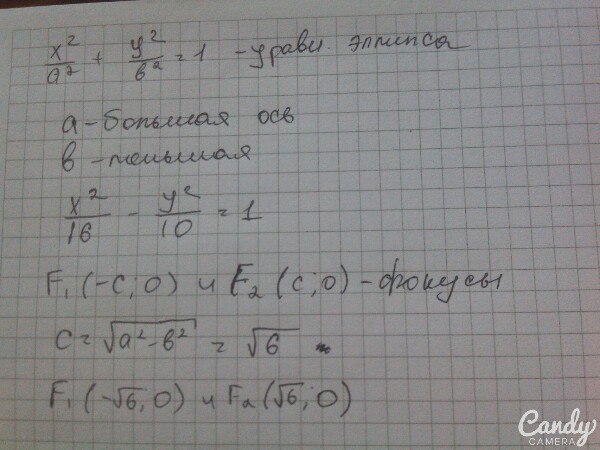 x²/a² + y²/b² = 1 - уравн. эллипса
a - большая ось
b - меньшая
x²/16 - y²/10 = 1
F₁(-c; 0) и F₂(c; 0) - фокусы
c = √(a² - b²) = √6
F₁(-√6; 0) и F₂(√6; 0)
Candy
CAMERA